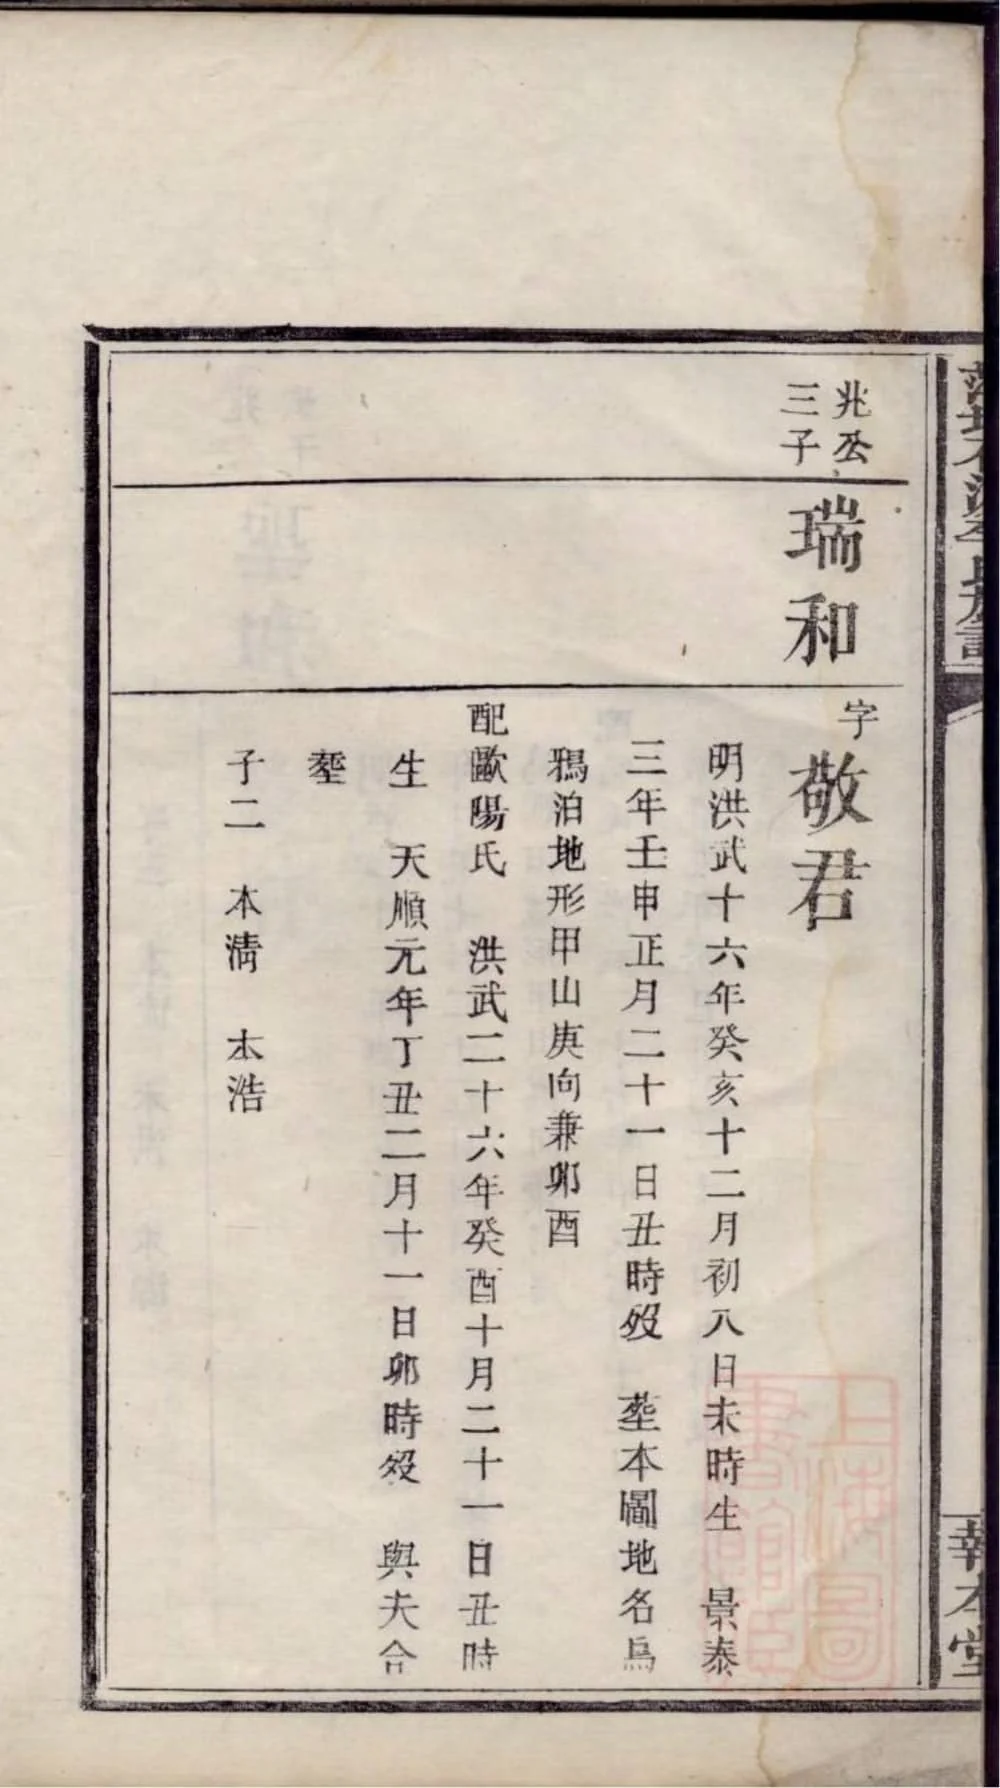 兆公
三子
瑞和
字敬君
明洪武十六年癸亥十二月初八日未時生　景泰
三年壬申正月二十一日丑時歿　塟本圖地名烏
鴉泊地形甲山庚向兼卯酉
配歐陽氏　洪武二十六年癸酉十月二十一日丑時
生　天順元年丁丑二月十一日卯時歿　與夫合
塟
子二　本淸　本浩
報本堂
上海圖
書館藏